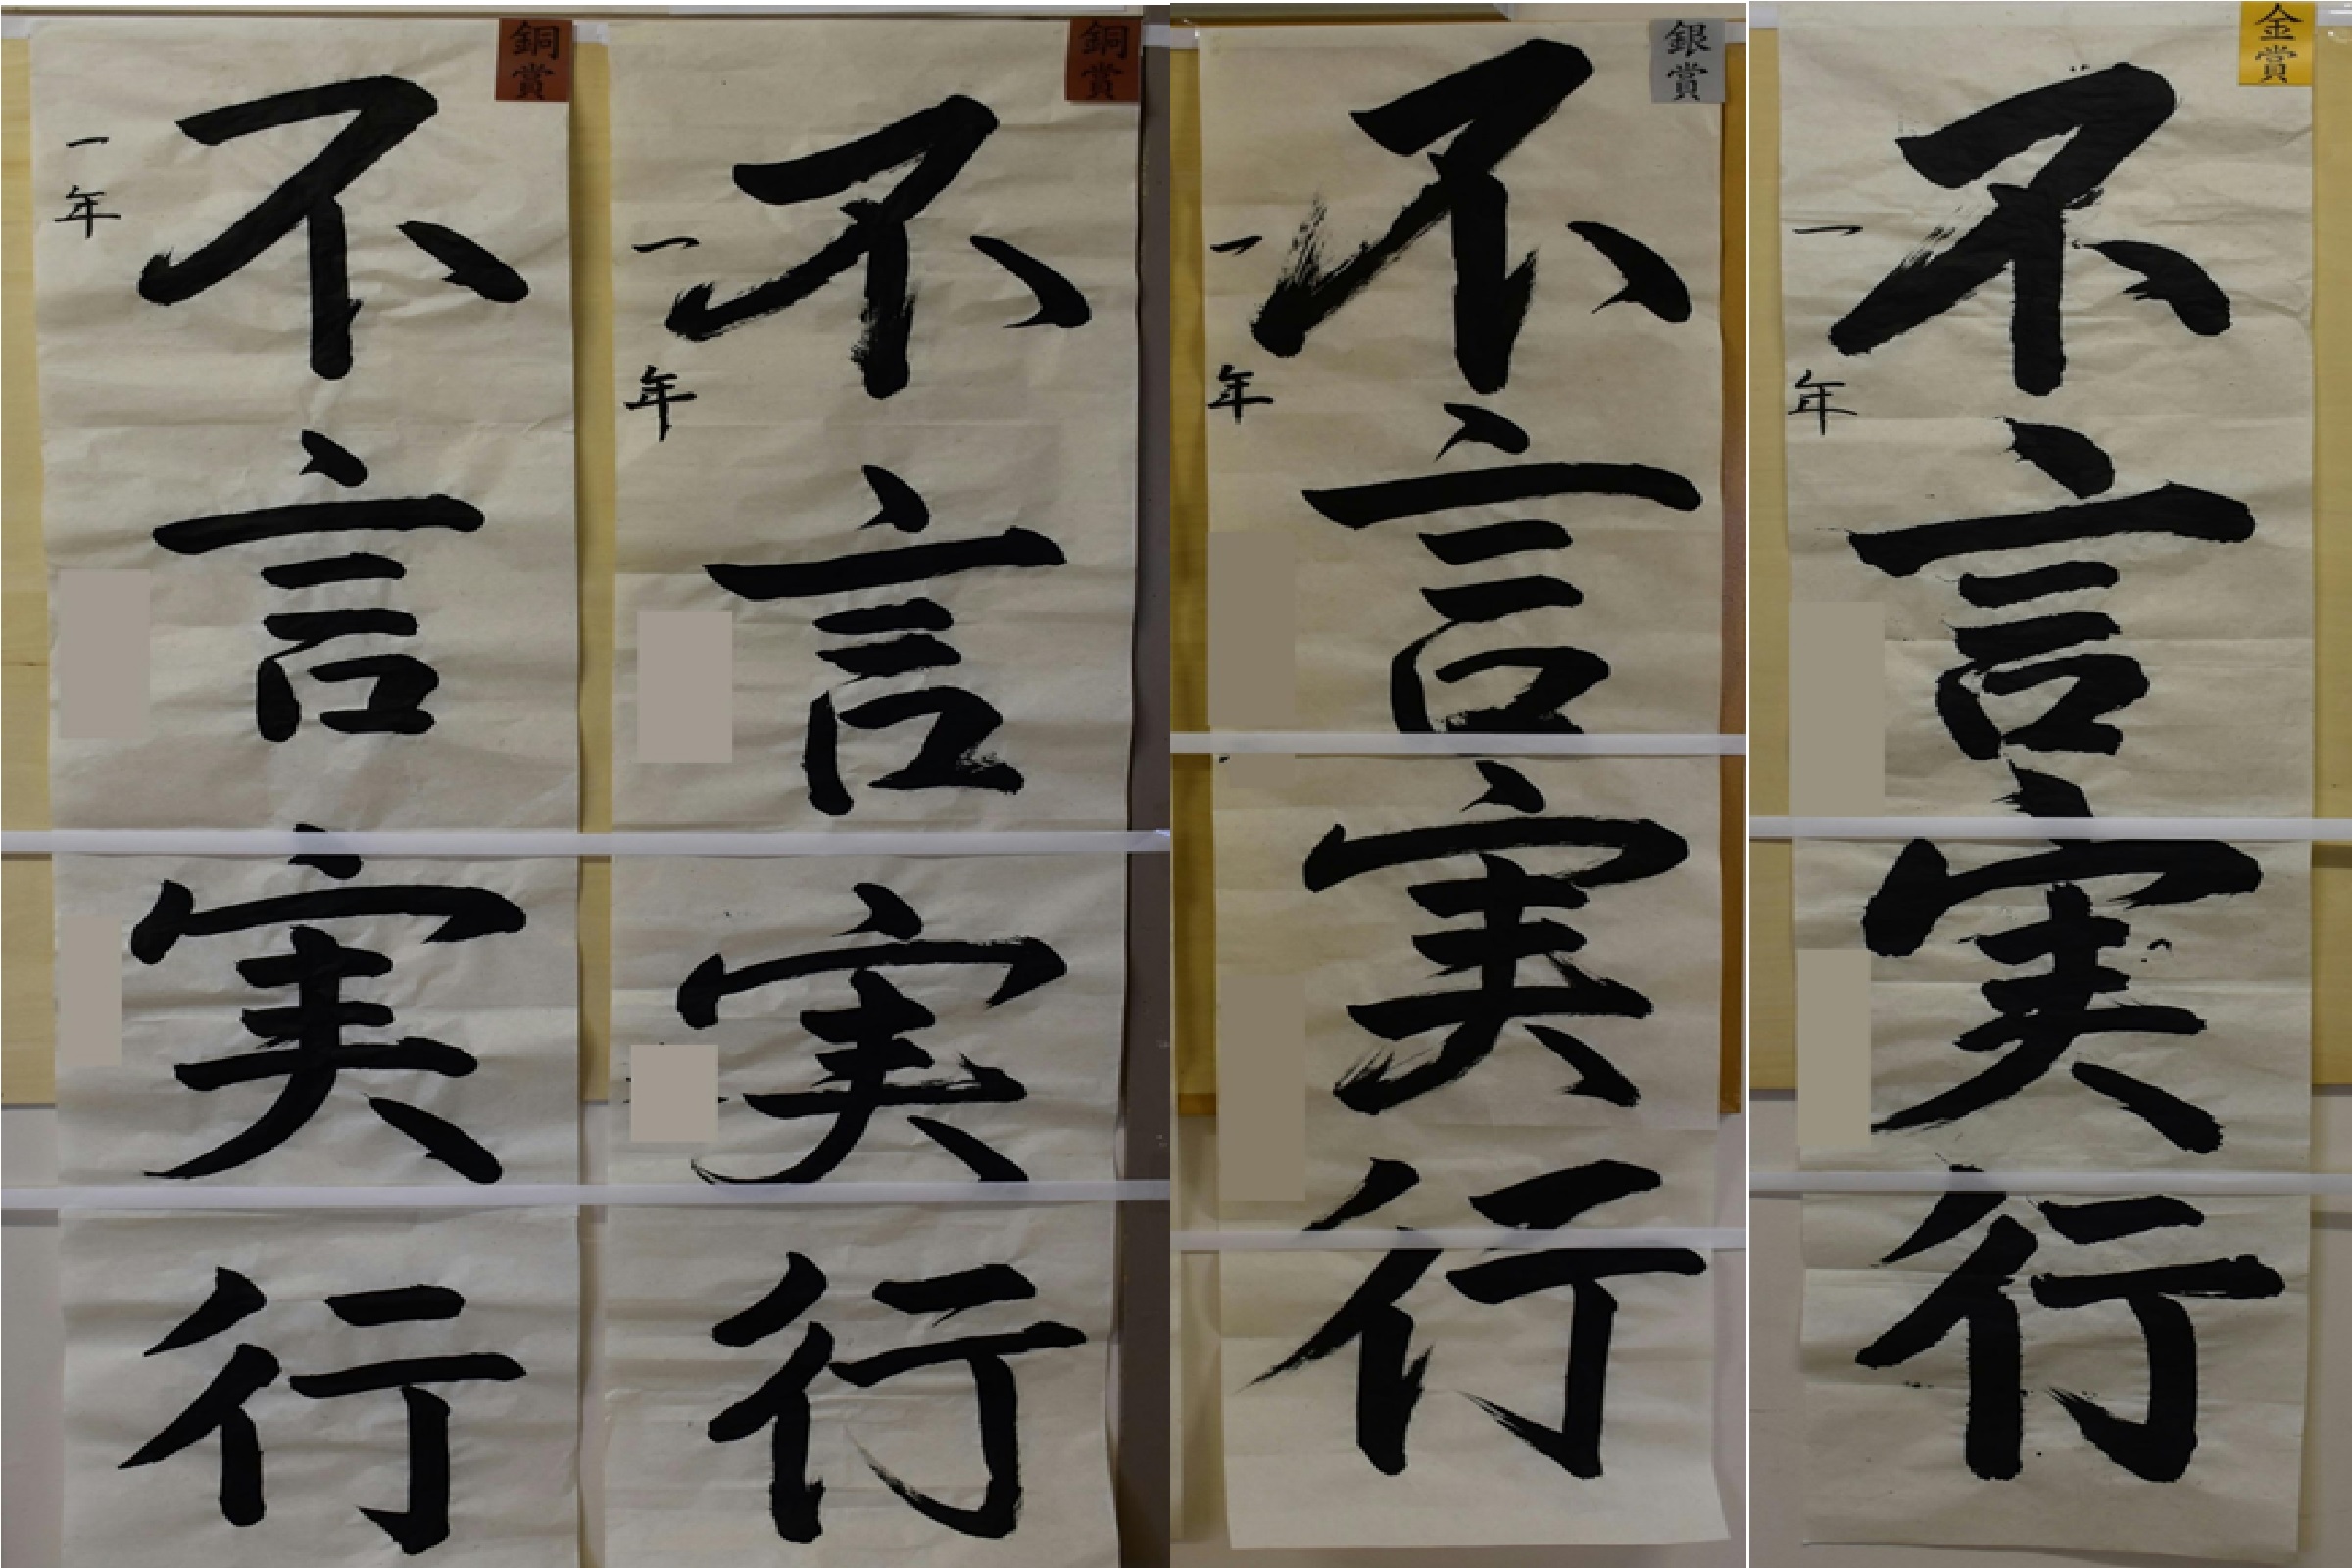 銅賞
不言実行
一年
銅賞
不言実行
一年
銀賞
不言実行
一年
金賞
不言実行
一年